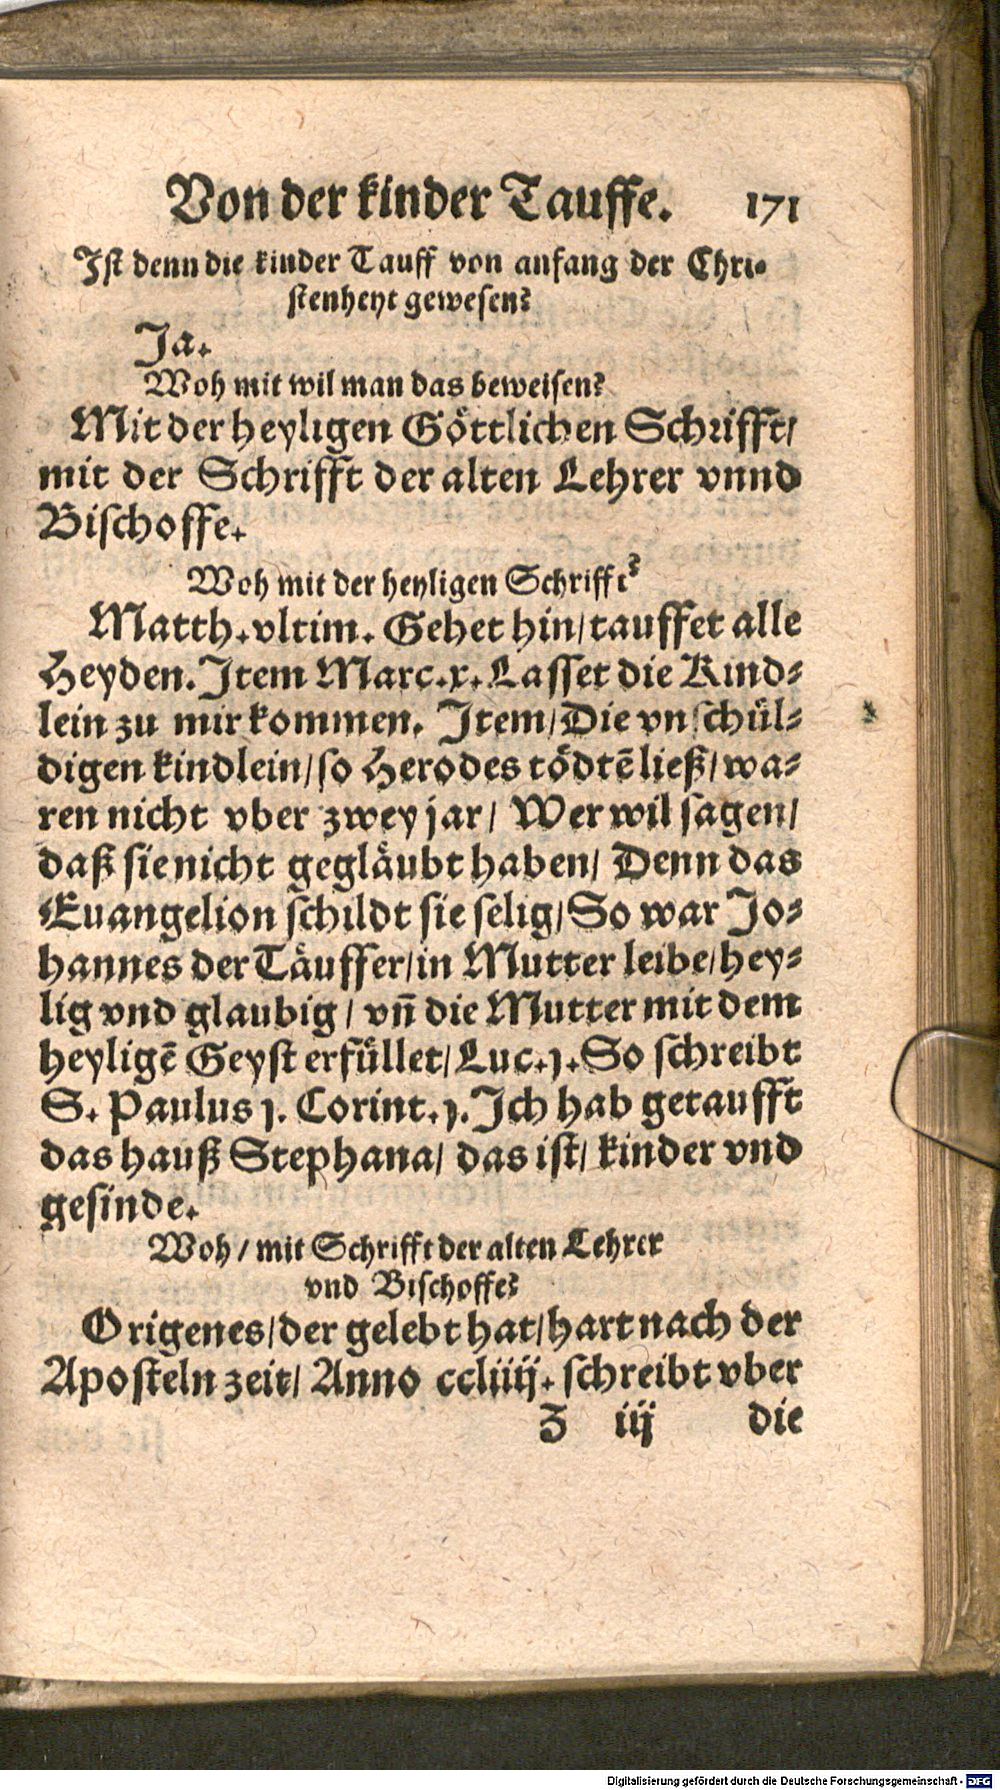 Von der kinder Tauffe. 171
Ist denn die kinder Tauff von anfang der Chri-
stenheyt gewesen?
Ja.
Woh mit wil man das beweisen?
Mit der heyligen Göttlichen Schrifft/
mit der Schrifft der alten Lehrer vnnd
Bischoffe.
Woh mit der heyligen Schrifft?
Matth. vltim. Gehet hin/ tauffet alle
Heyden. Item Marc. x. Lasset die Kind-
lein zu mir kommen. Item/ Die vnschül-
digen kindlein/ so Herodes tödtē ließ/ wa-
ren nicht vber zwey jar/ Wer wil sagen/
daß sie nicht gegläubt haben/ Denn das
Euangelion schildt sie selig/ So war Jo-
hannes der Täuffer/ in Mutter leibe/ hey-
lig vnd glaubig/ vñ die Mutter mit dem
heyligē Geyst erfüllet/ Luc. j. So schreibt
S. Paulus j. Corint. j. Ich hab getaufft
das hauß Stephana/ das ist/ kinder vnd
gesinde.
Woh/ mit Schrifft der alten Lehrer
vnd Bischoffe?
Origenes/ der gelebt hat/ hart nach der
Aposteln zeit/ Anno ccliiij. schreibt vber
Z iij die
Digitalisierung gefördert durch die Deutsche Forschungsgemeinschaft - DFG